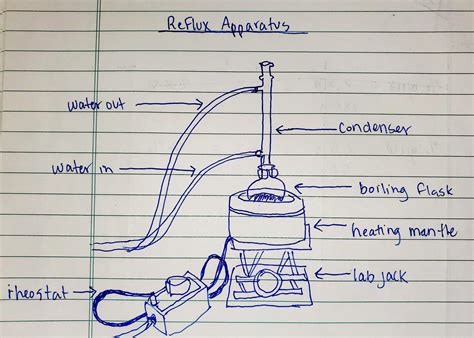 Reflux Apparatus
water out
condenser
water in
boiling flask
heating mantle
lab jack
rheostat